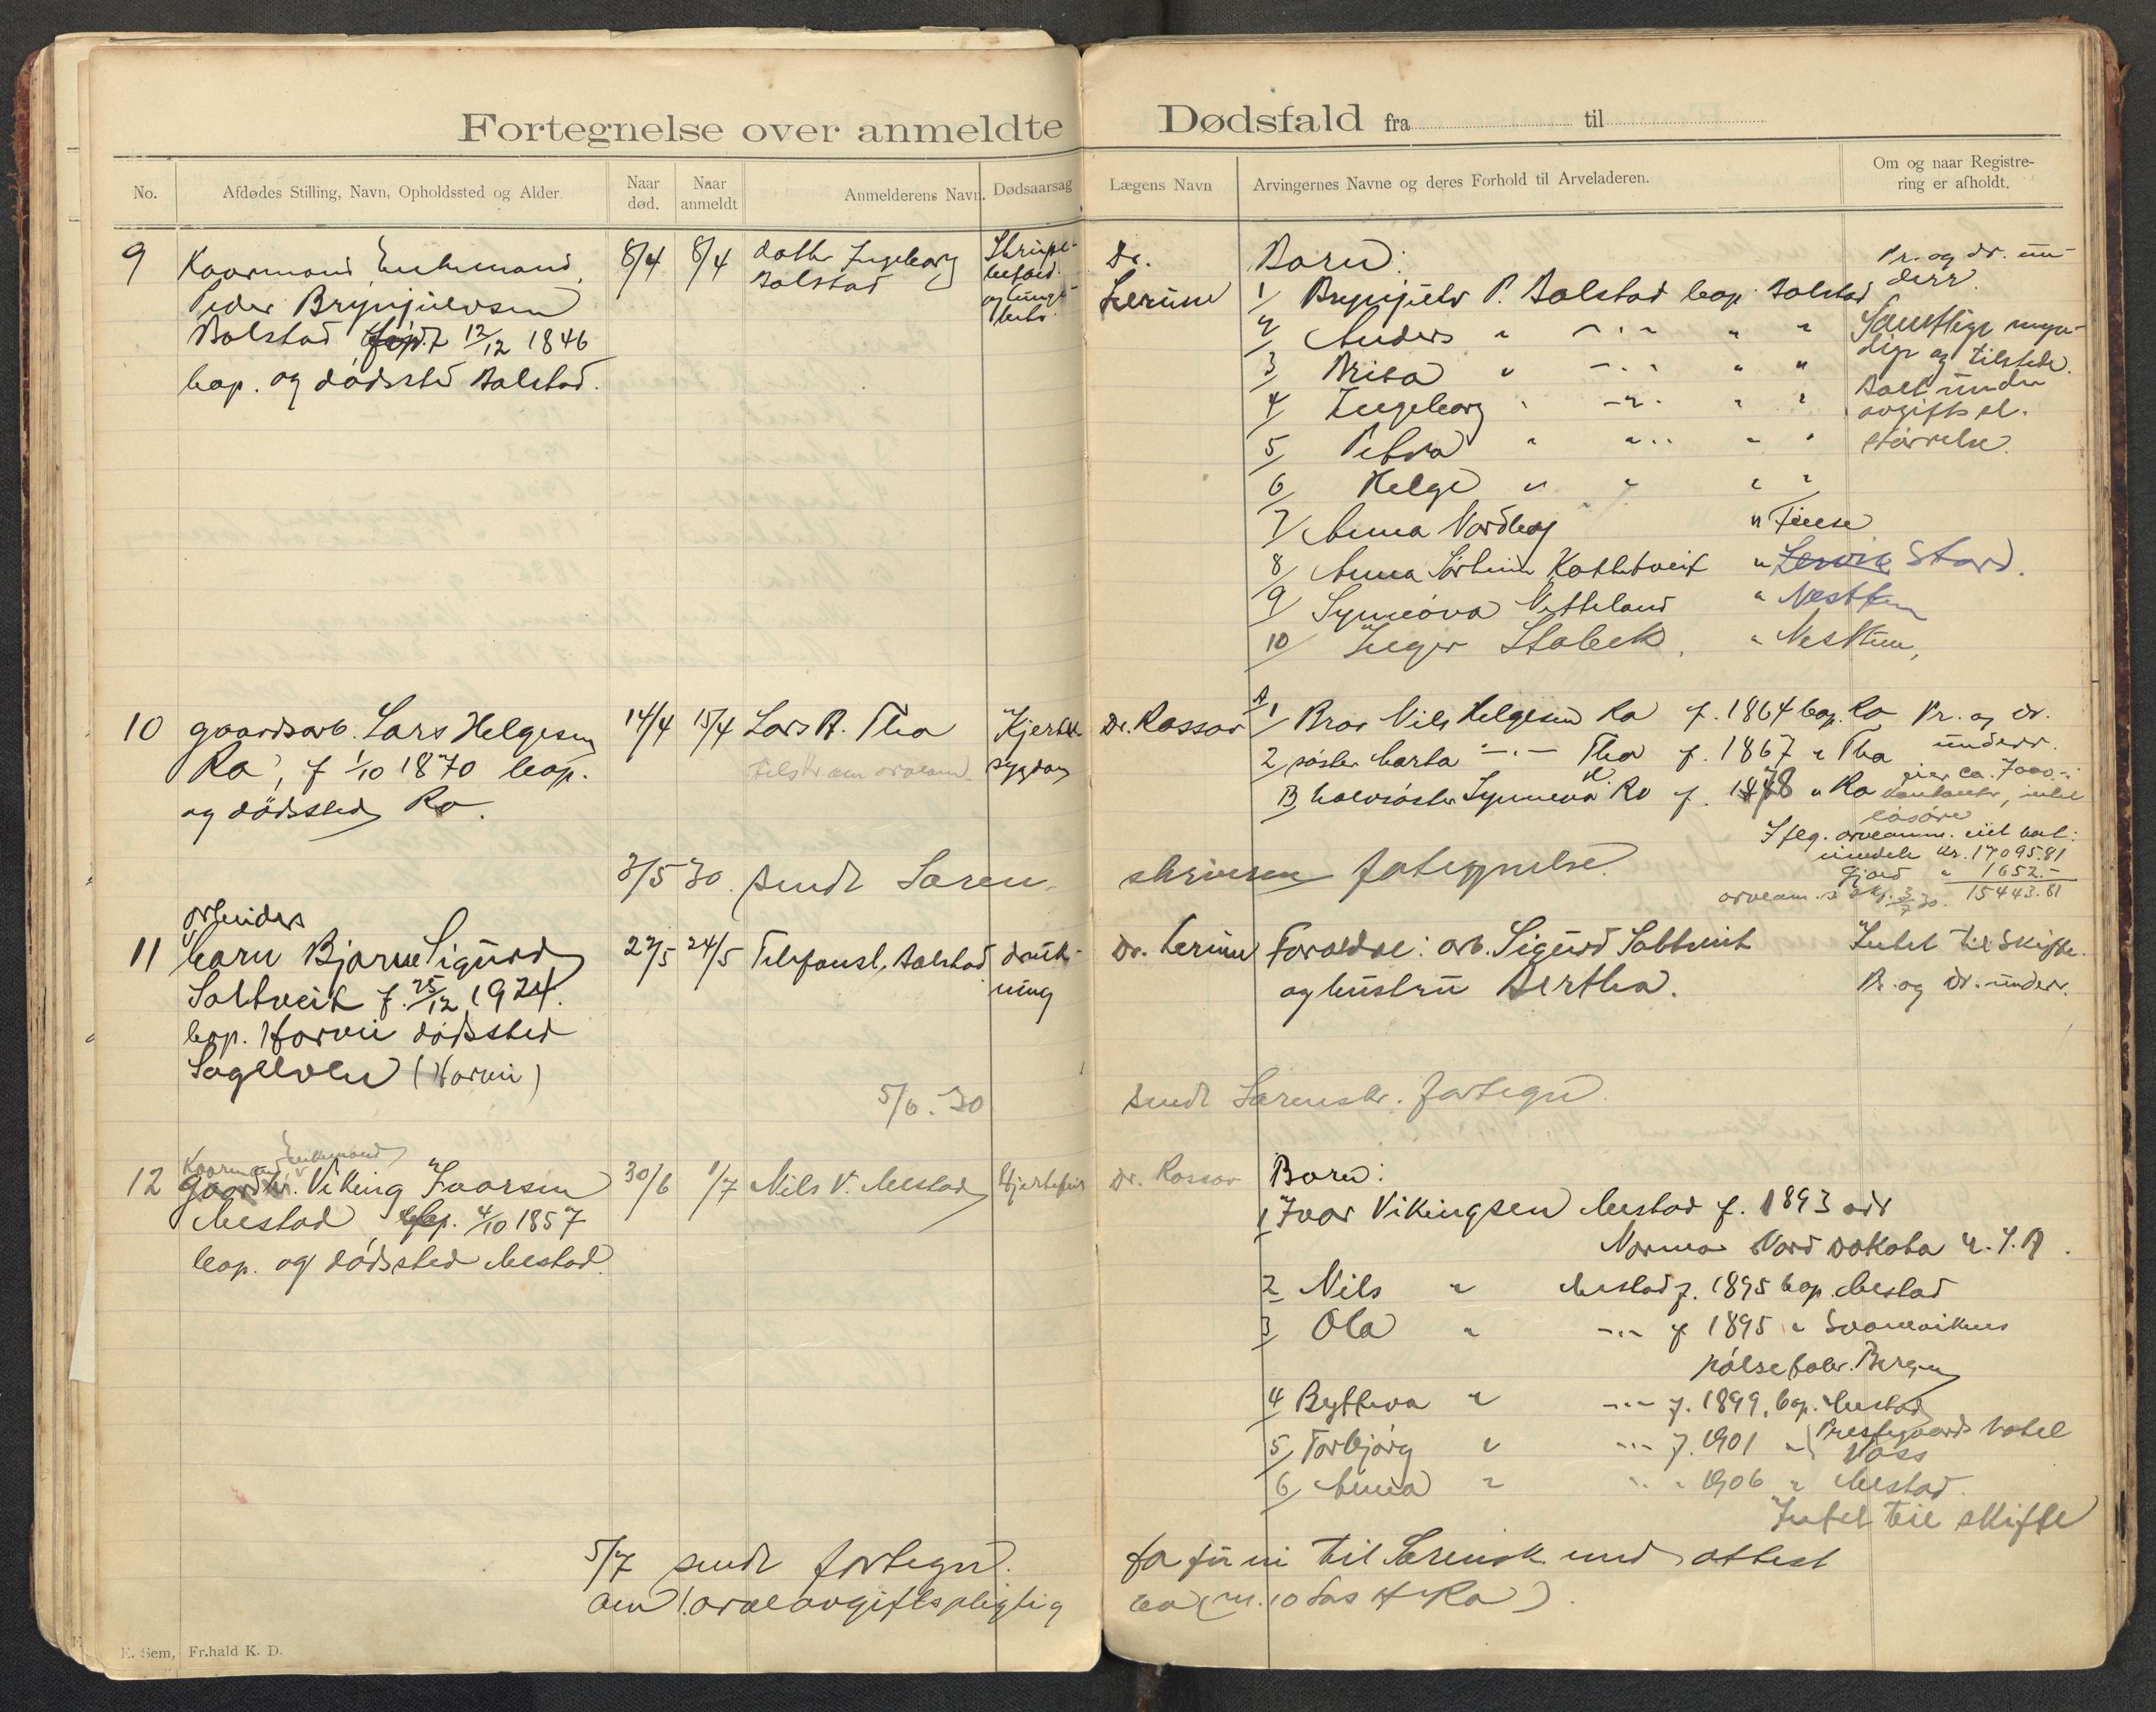 Fortegnelse over anmeldte Dødsfald fra til
No. Afdødes Stilling, Navn, Opholdssted og Alder. Naar død. Naar anmeldt Anmelderens Navn. Dødsaarsag Lægens Navn Arvingernes Navne og deres Forhold til Arveladeren. Om og naar Registrering er afholdt.
9 Kaarmand, Enkemand,
Peder Brynjulvsen
Bolstad født 12/12 1846
bop. og dødssted Bolstad.
8/4 8/4 datter Ingeborg
Bolstad
Strupe-
og lunge-
Dr.
Lerum
Born:
1/ Brynjulv P. Bolstad bop. Bolstad
2/ Anders " -"- " "
3/ Brita " -"- " "
4/ Ingeborg " -"- " "
5/ Petra " "" " "
6/ Helge " " " "
7/ Anna Nordbog " Finse
8/ Anna Sørheim Kattetveit " Lervik Stord.
9/ Synnøva Vetteland " Nesttun
10/ Inger Stabek, " Nesttun,
Pr. og dr. un-
derr.
Samtlige myn-
dige og tilstede.
Boet under
avgifts pl.
størrelse.
10 gaardsarb. Lars Helgesen
Ra, f 1/10 1870 bop.
og dødssted Ra.
14/4 15/4 Lars B. Tha
Hjerte
sygdom
Dr. Rossov
A
1/ Bror Nils Helgesen Ra f. 1864 bop. Ra
2 søster Marta -"- Tha f. 1867 " Tha
B, halvsøster Synneva H. Ra f. 1878 " Ra
Pr. og dr.
underr.
eier ca. 7000.-
kontanter, intet
løsøre
I flg. arveanm. utl. bet.
midel kr. 17095.81
Gjæld " 1652.-
15443.81
3/5 30. sendt Soren-
skriveren fortegnelse.
11 arbeiders
barn Bjarne Sigurd
Saltveit f. 25/12 1924.
bop. Horvei dødssted
Sagelven (Horvei)
22/5 24/5 Telefonst. Bolstad
druk-
ning
Dr. Lerum
Foreldre: arb. Sigurd Saltveit
og hustru Bertha.
Intet til skifte.
Pr. og dr. underr.
5/6. 30 sendt Sorenskr. fortegn.
12 Kaarmand, Enkemand
Viking Ivarsen
Mestad, 4/10 1857
bop. og dødssted Mestad.
30/6 1/7 Nils V. Mestad
Dr. Rossov
Born:
1 Ivar Vikingsen Mestad f. 1893 adr
Norma Nord Dakota U.S.A.
2 Nils " Mestad f. 1895 bop. Mestad
3/ Ola " -"- f 1895 "
pølsefabr. Bergen
4 Bytteva " -"- f. 1899. bop. Mestad
5/ Torbjørg " -"- f. 1901 " Prestegaards hotel
Voss
6/ Anna " " " 1906 " Mestad.
Intet til skifte
5/7 sendt fortegn.
for juni til Sorensk med attest
om 1. arveavgiftspligtig
bo (nr. 10 Lars H Ra).
E. Sem, Fr.hald K. D.